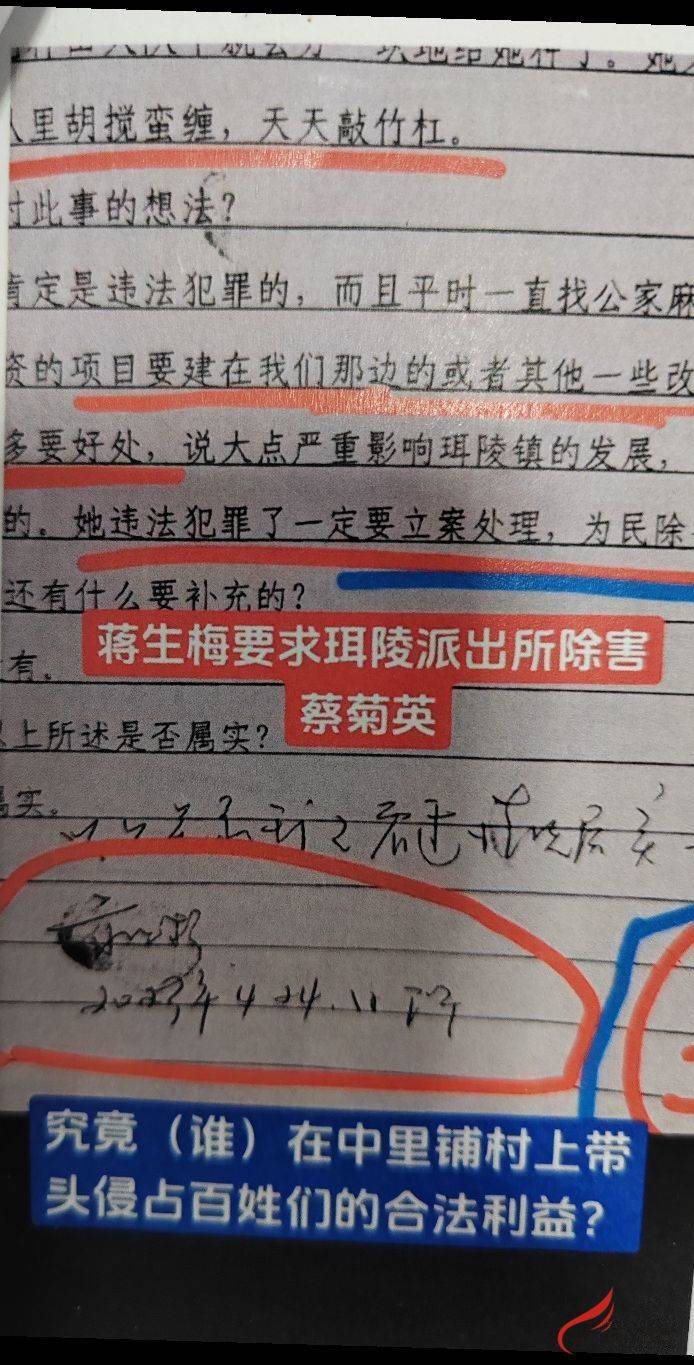 里胡搅蛮缠，天天敲竹杠。
对此事的想法？
肯定是违法犯罪的，而且平时一直找公家麻
资的项目要建在我们那边的或者其他一些改
多要好处，说大点严重影响珥陵镇的发展，
的。她违法犯罪了一定要立案处理，为民除
还有什么要补充的？
蒋生梅要求珥陵派出所除害
蔡菊英
有。
以上所述是否属实？
属实。
2023年4.24.11时
究竟（谁）在中里铺村上带
头侵占百姓们的合法利益？